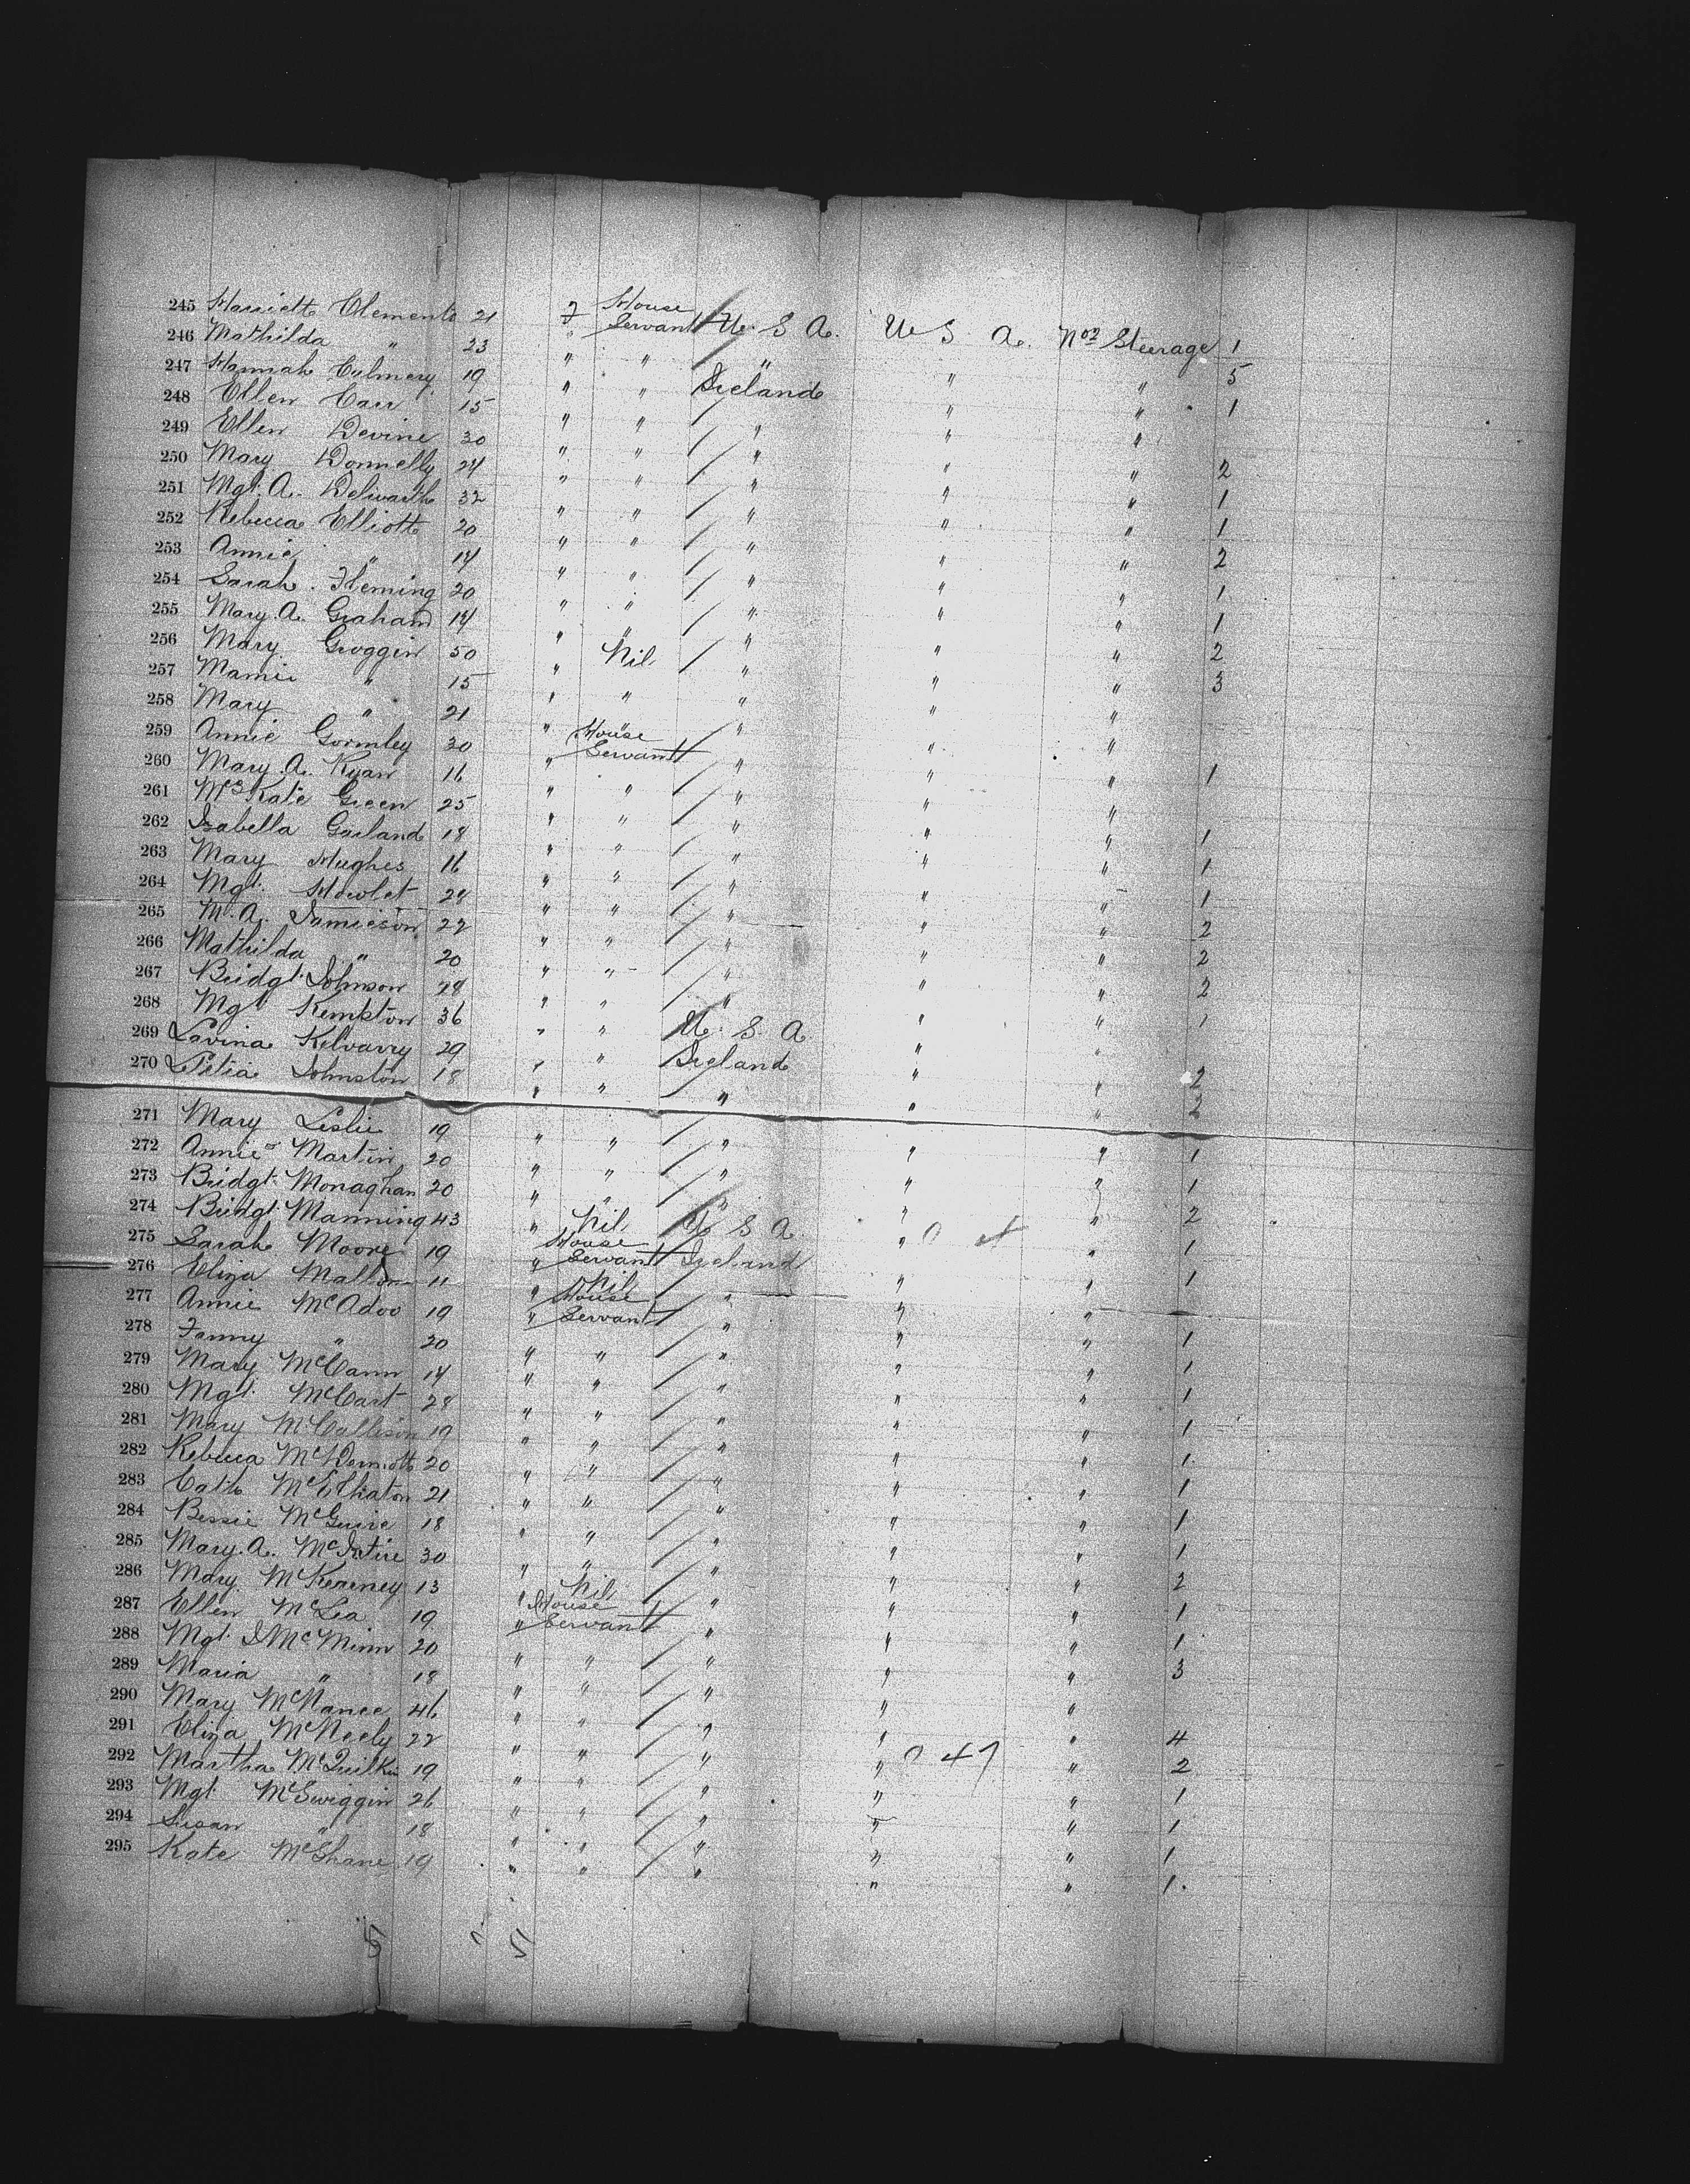 245 Harriett Clements 21 F House Servant U. S. A. U S A. No 2 Steerage 1
246 Mathilda " 23 " " " " " 5
247 Hannah Culmery 19 " " Ireland " " 1
248 Ellen Carr 15 " " " " "
249 Ellen Devine 30 " " " " " 2
250 Mary Donnelly 24 " " " " " 1
251 Mgt. A. 32 " " " " " 1
252 Rebecca Elliott 20 " " " " " 2
253 Annie " 14 " " " " " 1
254 Sarah Fleming 20 " " " " " 1
255 Mary A. Graham 14 " " " " " 2
256 Mary Groggin 50 " Nil " " " 3
257 Mamie " 15 " " " " "
258 Mary " 21 " " " " "
259 Annie Gormley 30 " House Servant " " " 1
260 Mary A. Ryan 16 " " " " "
261 Mrs Kate Green 25 " " " " " 1
262 Isabella Garland 18 " " " " " 1
263 Mary Hughes 16 " " " " " 1
264 Mgt. Howlet 28 " " " " " 2
265 M. A. Jamieson 22 " " " " " 2
266 Mathilda " 20 " " " " " 2
267 Bridgt. Johnson 28 " " " " " 1
268 Mgt Kempton 36 " " U. S. A. " "
269 Lavina Kelvarry 29 " " Ireland " " 2
270 Letitia Johnston 18 " " " " " 2
271 Mary Leslie 19 " " " " " 1
272 Annie Martin 20 " " " " " 1
273 Bridgt. Monaghan 20 " " " " " 2
274 Bridgt. Manning 43 " Nil U S A. " " 1
275 Sarah Moore 19 " House Servant Ireland " " 1
276 Eliza 11 " Nil " " "
277 Annie McAdoo 19 " House Servant " " " 1
278 Fanny " 20 " " " " " 1
279 Mary McCann 14 " " " " " 1
280 Mgt. McCart 28 " " " " " 1
281 Mary McCallison 19 " " " " " 1
282 Rebecca McDermott 20 " " " " " 1
283 Cath McElhaton 21 " " " " " 1
284 Bessie McGuire 18 " " " " " 1
285 Mary. A. McIntire 30 " " " " " 2
286 Mary McKearney 13 " Nil " " " 1
287 Ellen McLea 19 " House Servant " " " 1
288 Mgt. J McMinn 20 " " " " " 3
289 Maria " 18 " " " " "
290 Mary McNanee 46 " " " " " 4
291 Eliza McNeely 22 " " " " " 2
292 Martha McQuilkin 19 " " " " " 1
293 Mgt. McSwiggin 26 " " " " " 1
294 Susan " 18 " " " " " 1
295 Kate McShane 19 " " " " " 1